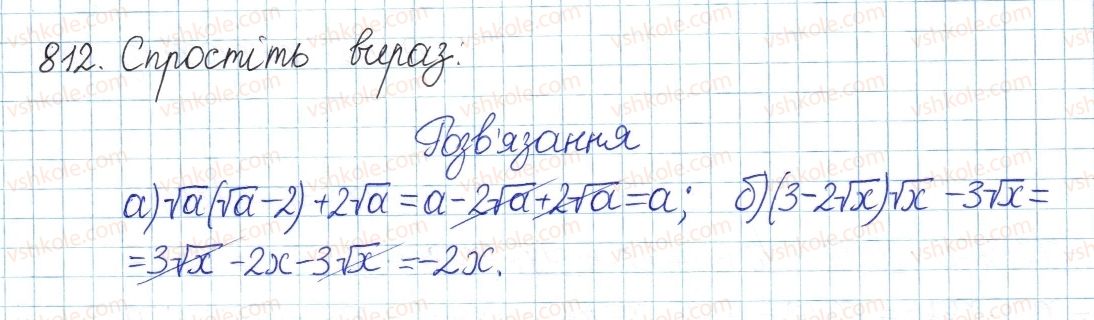 812. Спростіть вираз:
Розв'язання
а) √a(√a-2)+2√a=a-2√a+2√a=a; б) (3-2√x)√x-3√x=
=3√x-2x-3√x=-2x.
vshkole.com